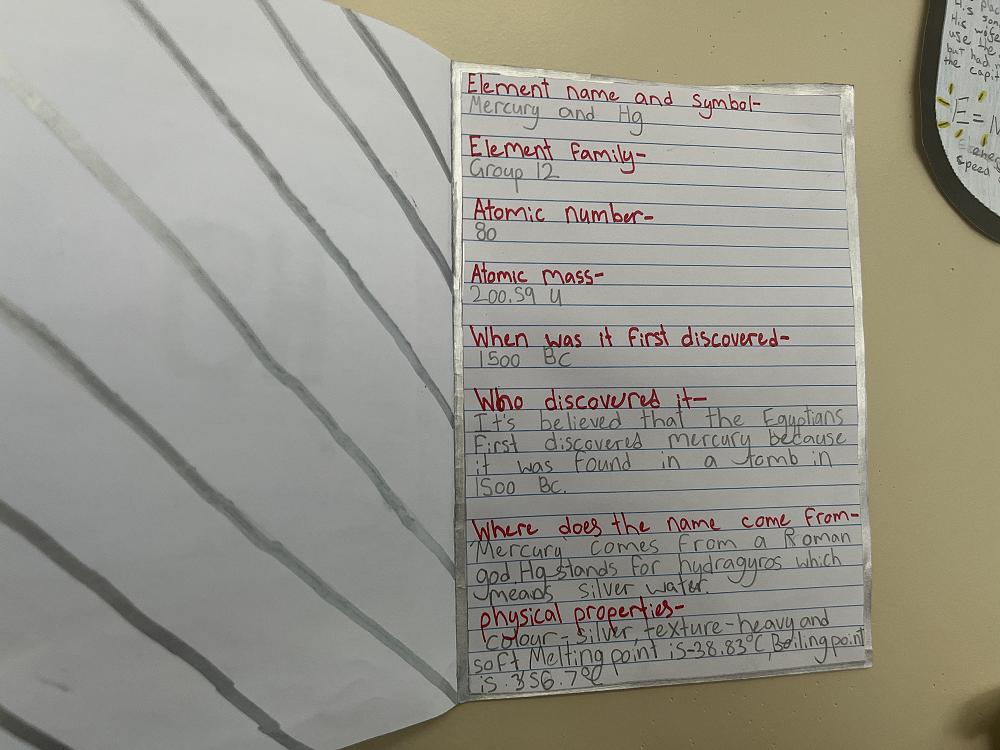 Element name and symbol-
Mercury and Hg
Element family-
Group 12
Atomic number-
80
Atomic mass-
200.59 u
When was it first discovered-
1500 BC
Who discovered it-
It's believed that the Egyptians
first discovered mercury because
it was found in a tomb in
1500 Bc.
Where does the name come from-
Mercury comes from a Roman
god. Hg stands for hydragyros which
means silver water.
physical properties-
colour-silver, texture-heavy and
soft Melting point is-38.83°C Boiling point
is 356.7°C
His
His wife
use the
but had
the capit
E=M
speed